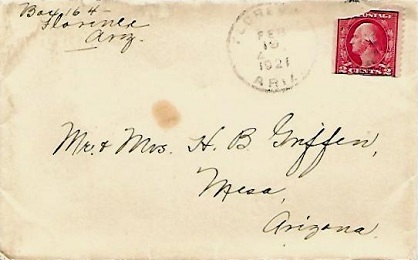 Box 164
Florence
Ariz.
FLORENCE
FEB
19
1921
ARIZ
POSTAGE
2 CENTS 2
Mr. & Mrs. H. B. Griffen,
Mesa,
Arizona.